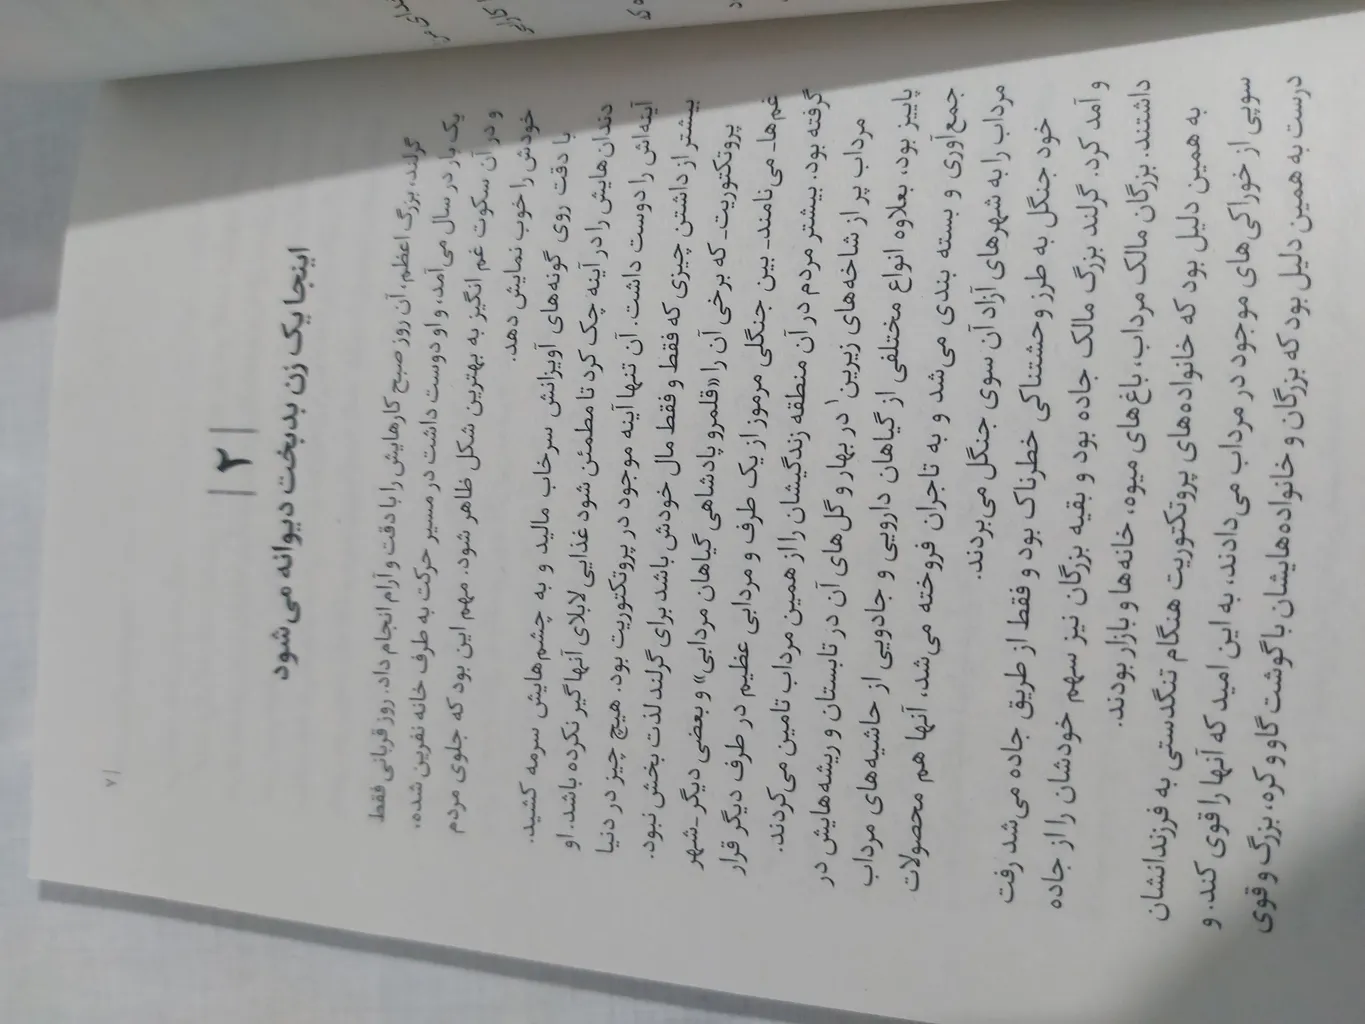 ۷ /
/ ۲ /
اینجا یک زن بدبخت دیوانه می‌شود
گرلند، بزرگ اعظم، آن روز صبح کارهایش را با دقت و آرام انجام داد. روز قربانی فقط
یک بار در سال می‌آمد، و او دوست داشت در مسیر حرکت به طرف خانه نفرین شده،
و در آن سکوت غم انگیز به بهترین شکل ظاهر شود. مهم این بود که جلوی مردم
خودش را خوب نمایش دهد.
با دقت روی گونه‌های آویزانش سرخاب مالید و به چشم‌هایش سرمه کشید.
دندان‌هایش را در آینه چک کرد تا مطمئن شود غذایی لابلای آنها گیر نکرده باشد. او
آینه‌اش را دوست داشت. آن تنها آینه موجود در پروتکتوریت بود. هیچ چیز در دنیا
بیشتر از داشتن چیزی که فقط و فقط مال خودش باشد برای گرلند لذت بخش نبود.
پروتکتوریت ـ که برخی آن را «قلمرو پادشاهی گیاهان مردابی» و بعضی دیگر ـ شهر
غم‌ها ـ می‌نامند ـ بین جنگلی مرموز از یک طرف و مردابی عظیم در طرف دیگر قرار
گرفته بود. بیشتر مردم در آن منطقه زندگیشان را از همین مرداب تامین می‌کردند.
مرداب پر از شاخه‌های زیرین۱ در بهار و گل‌های آن در تابستان و ریشه‌هایش در
پاییز بود، بعلاوه انواع مختلفی از گیاهان دارویی و جادویی از حاشیه‌های مرداب
جمع‌آوری و بسته بندی می‌شد و به تاجران فروخته می‌شد، آنها هم محصولات
مرداب را به شهرهای آزاد آن سوی جنگل می‌بردند.
خود جنگل به طرز وحشتناکی خطرناک بود و فقط از طریق جاده می‌شد رفت
و آمد کرد. گرلند بزرگ مالک جاده بود و بقیه بزرگان نیز سهم خودشان را از جاده
داشتند. بزرگان مالک مرداب، باغ‌های میوه، خانه‌ها و بازار بودند.
به همین دلیل بود که خانواده‌های پروتکتوریت هنگام تنگدستی به فرزندانشان
سوپی از خوراکی‌های موجود در مرداب می‌دادند، به این امید که آنها را قوی کند. و
درست به همین دلیل بود که بزرگان و خانواده‌هایشان با گوشت گاو و کره، بزرگ و قوی